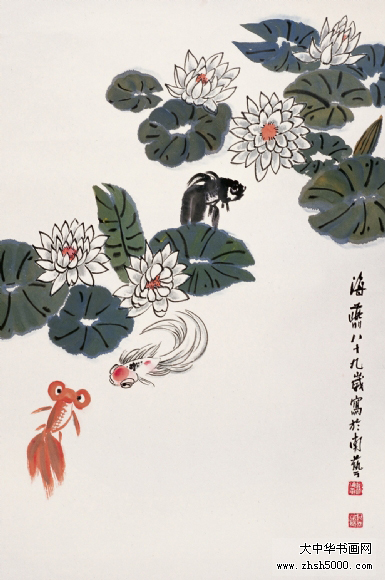 海燕八十九歲寫於南藝
大中华书画网
www.zhsh5000.com